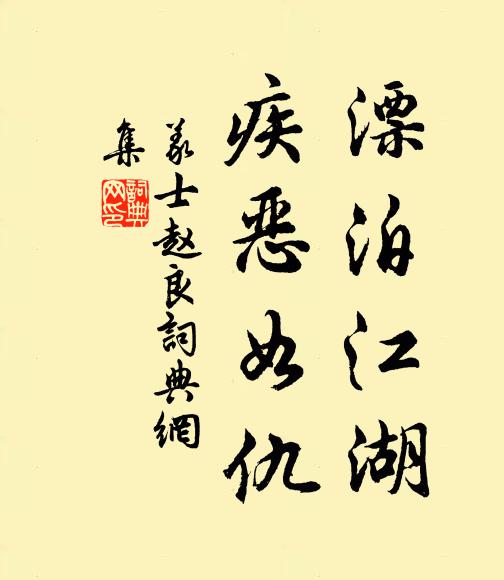 漂泊江湖
疾恶如仇
义士赵良詞典網
集
詞典网印